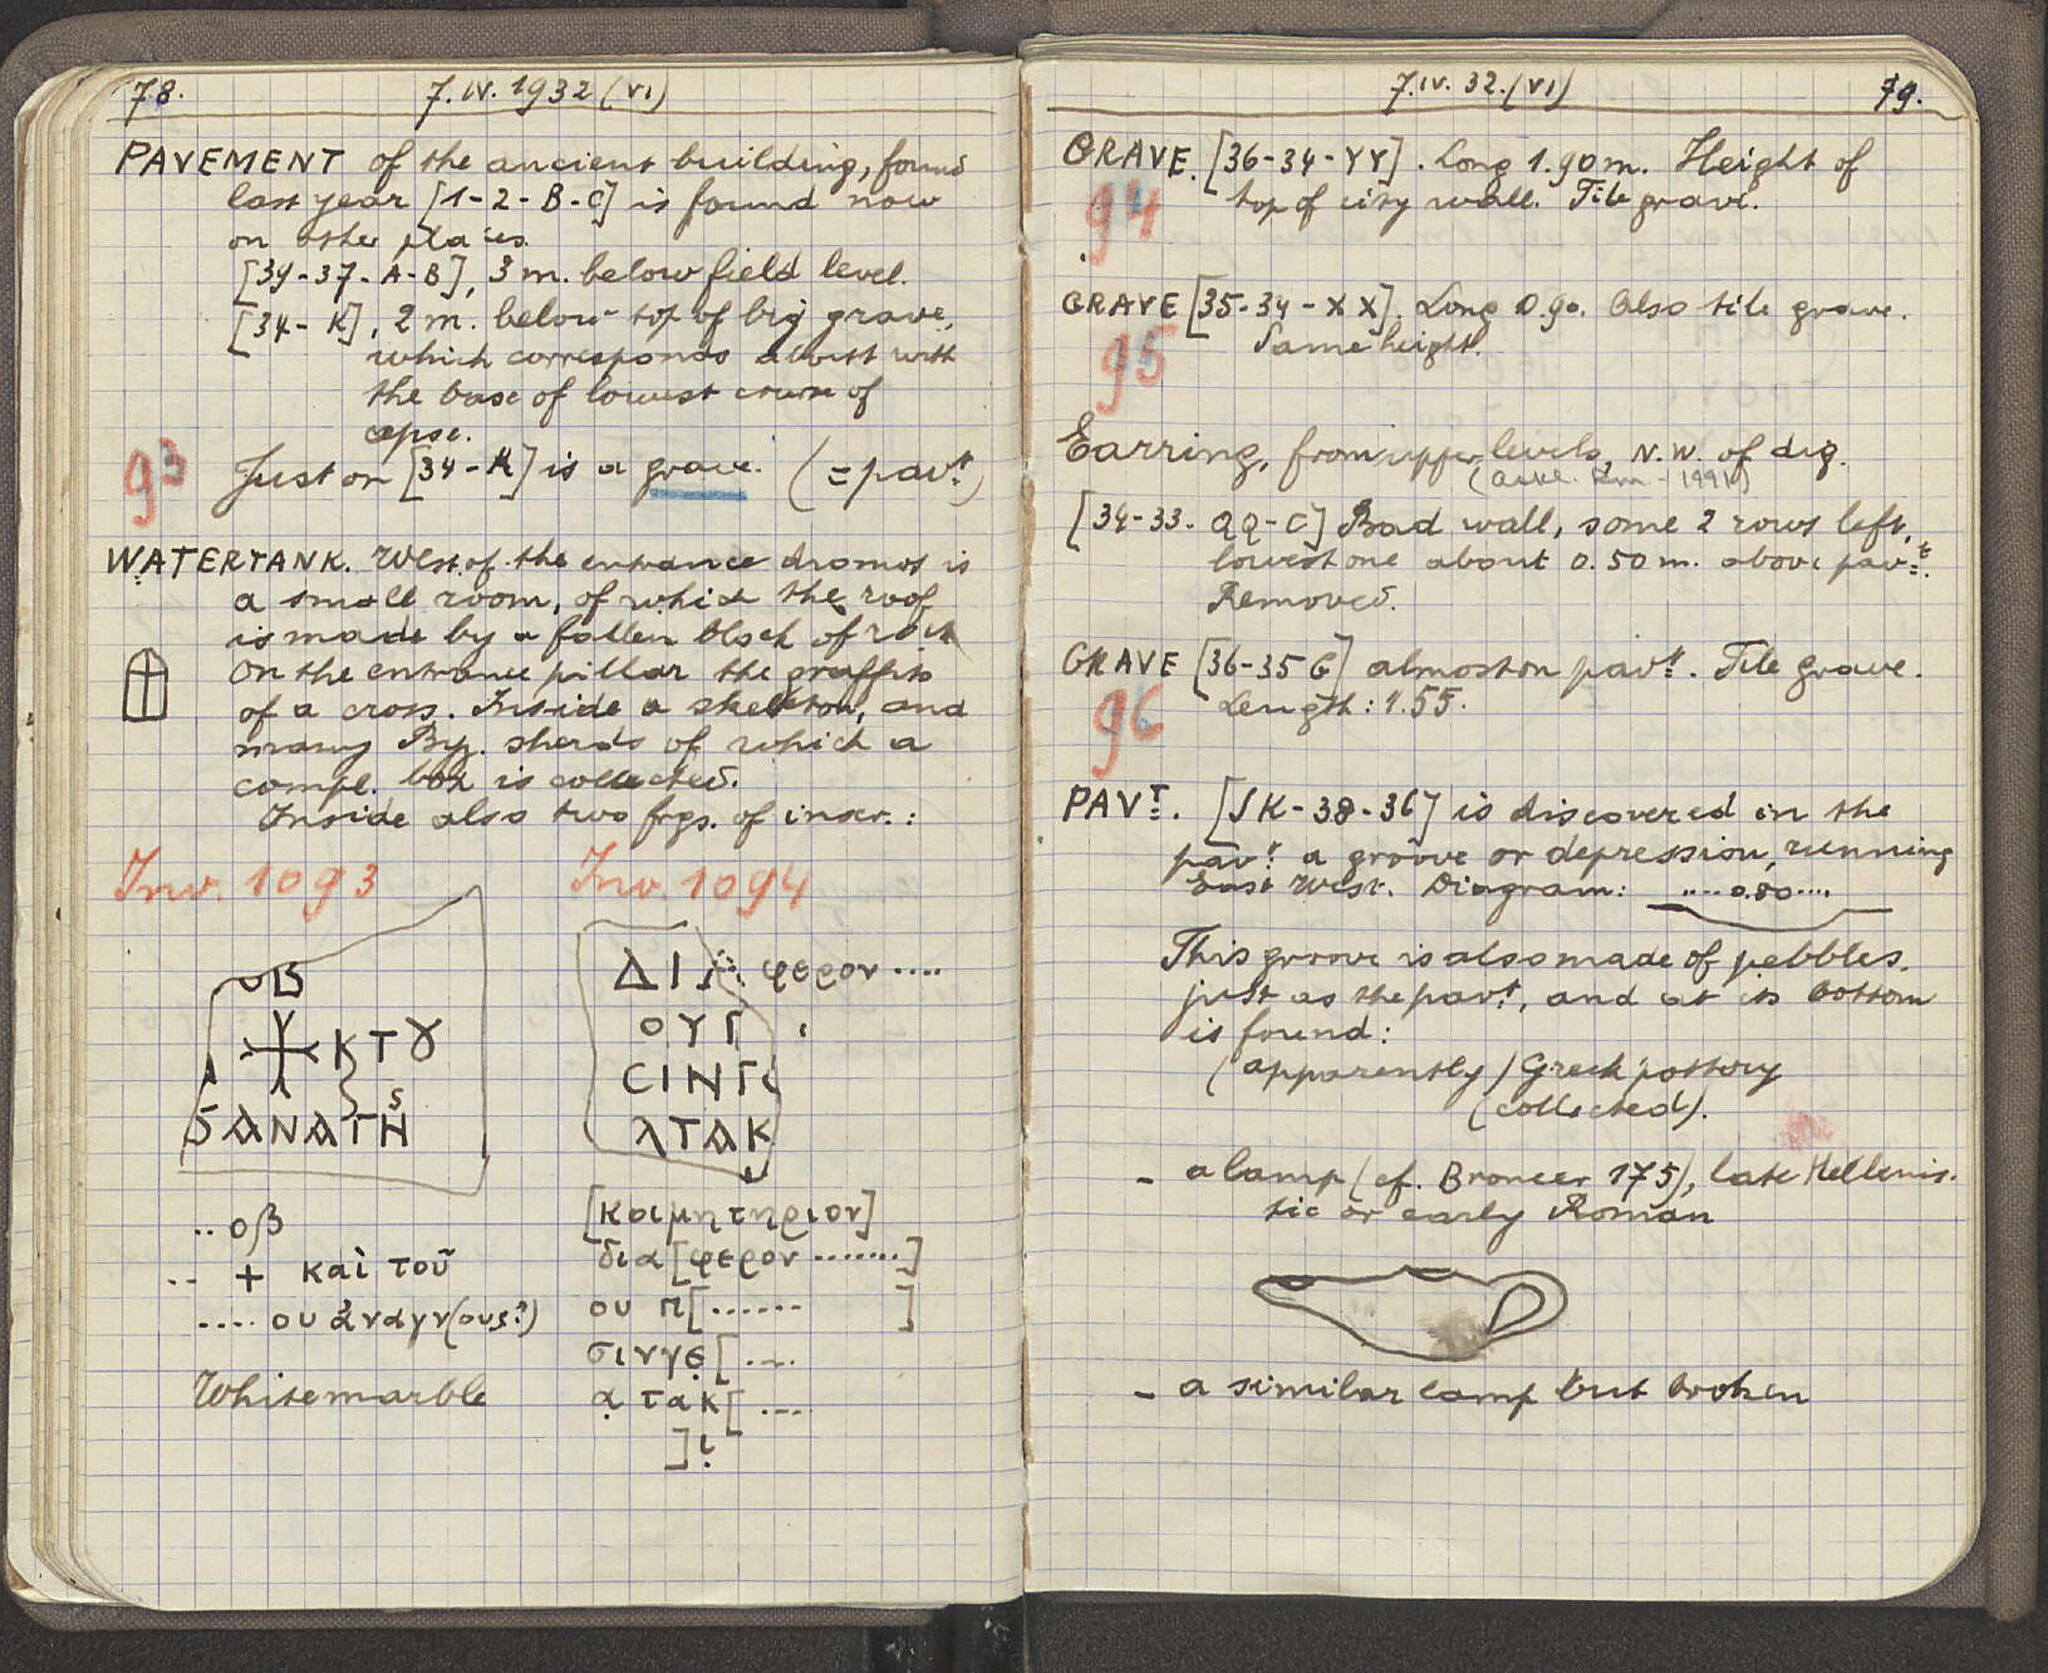 78.
7.IV.1932 (VI)
PAVEMENT of the ancient building, found
last year [1-2-B-C] is found now
on other places.
[39-37-A-B], 3 m. below field level.
[34-K], 2 m. below top of big grave,
which corresponds about with
the base of lowest course of
apse.
93 Just on [34-K] is a grave. (=pavt)
WATERTANK. West of the entrance dromos is
a small room, of which the roof
is made by a fallen block of rock
On the entrance pillar the graffito
of a cross. Inside a skeleton, and
many Byz. sherds of which a
compl. box is collected.
Inside also two frgs. of inscr.:
Inv. 1093 Inv. 1094
οΒ
ΚΤȢ
ΑΝΑΓΗ
ΔΙ φερον ....
ΟΥΓ
CΙΝΓ
λΤΑΚ
.. οβ
.. + καὶ τοῦ
.... ου ἀναγν(ους?)
White marble
[κοιμητηριον]
δια[φερον .......]
ου π[...... ]
σινγε[....
α τακ[....
]!
7.IV.32.(VI)
79.
GRAVE. [36-34-YY]. Long 1.90 m. Height of
94 top of city wall. Tile grave.
GRAVE [35-34-XX]. Long 0.90. Also tile grave.
95 Same height.
Earring, from upper levels, N.W. of dig.
[34-33. QQ-C] Bad wall, some 2 rows left,
lowest one about 0.50 m. above pavt.
Removed.
GRAVE [36-35 G] almost on pavt. Tile grave.
96 Length: 1.55.
PAVT. [JK-38-36] is discovered in the
pavt a groove or depression, running
East West. Diagram: ....0.80....
This groove is also made of pebbles,
just as the pavt, and at its bottom
is found:
(apparently) Greek pottery
(collected).
- a lamp (cf. Broneer 175), late Hellenis-
tic or early Roman
- a similar lamp but broken